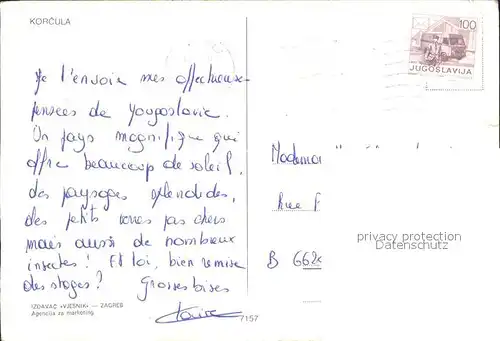 KORČULA
Je t'envoie mes affectueuses
pensées de Yougoslavie.
Un pays magnifique qui
offre beaucoup de soleil,
des paysages splendides,
des petits pas chers
mais aussi de nombreux
insectes! Et toi, bien remise
des stages? Grosses bises
IZDAVAČ »VJESNIK« — ZAGREB
Agencija za marketing
7157
100
JUGOSLAVIJA
Rue
privacy protection
Datenschutz
B 668